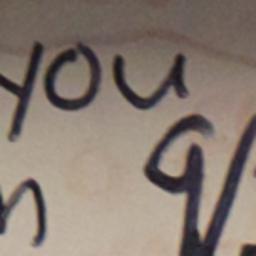 you
n 9/